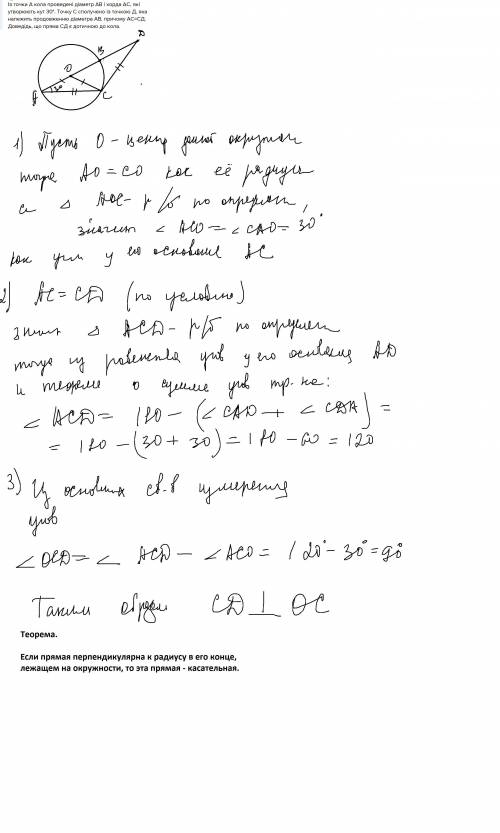 Із точки А кола проведені діаметр АВ і хорда АС, які
утворюють кут 30°. Точку С сполучено із точкою Д, яка
належить продовженню діаметра АВ, причому АС=СД.
Доведідь, що пряма СД є дотичною до кола.
D
B
O
30°
A
C
1) Пусть O - центр окружн
тогда AO = CO как её радиусы
и △ AOC - р/б по определен,
значит ∠ ACO = ∠ CAO = 30°
как углы у его основания AC
2) AC = CD (по условию)
значит △ ACD - р/б по определен
тогда из равенства углов у его основания AD
и теореме о сумме углов тр-ка:
∠ ACD = 180 - (∠ CAD + ∠ CDA) =
= 180 - (30 + 30) = 180 - 60 = 120
3) Из основных св-в измерения
углов
∠ OCD = ∠ ACD - ∠ ACO = 120° - 30° = 90°
Таким образом CD ⊥ OC
Теорема.
Если прямая перпендикулярна к радиусу в его конце,
лежащем на окружности, то эта прямая - касательная.